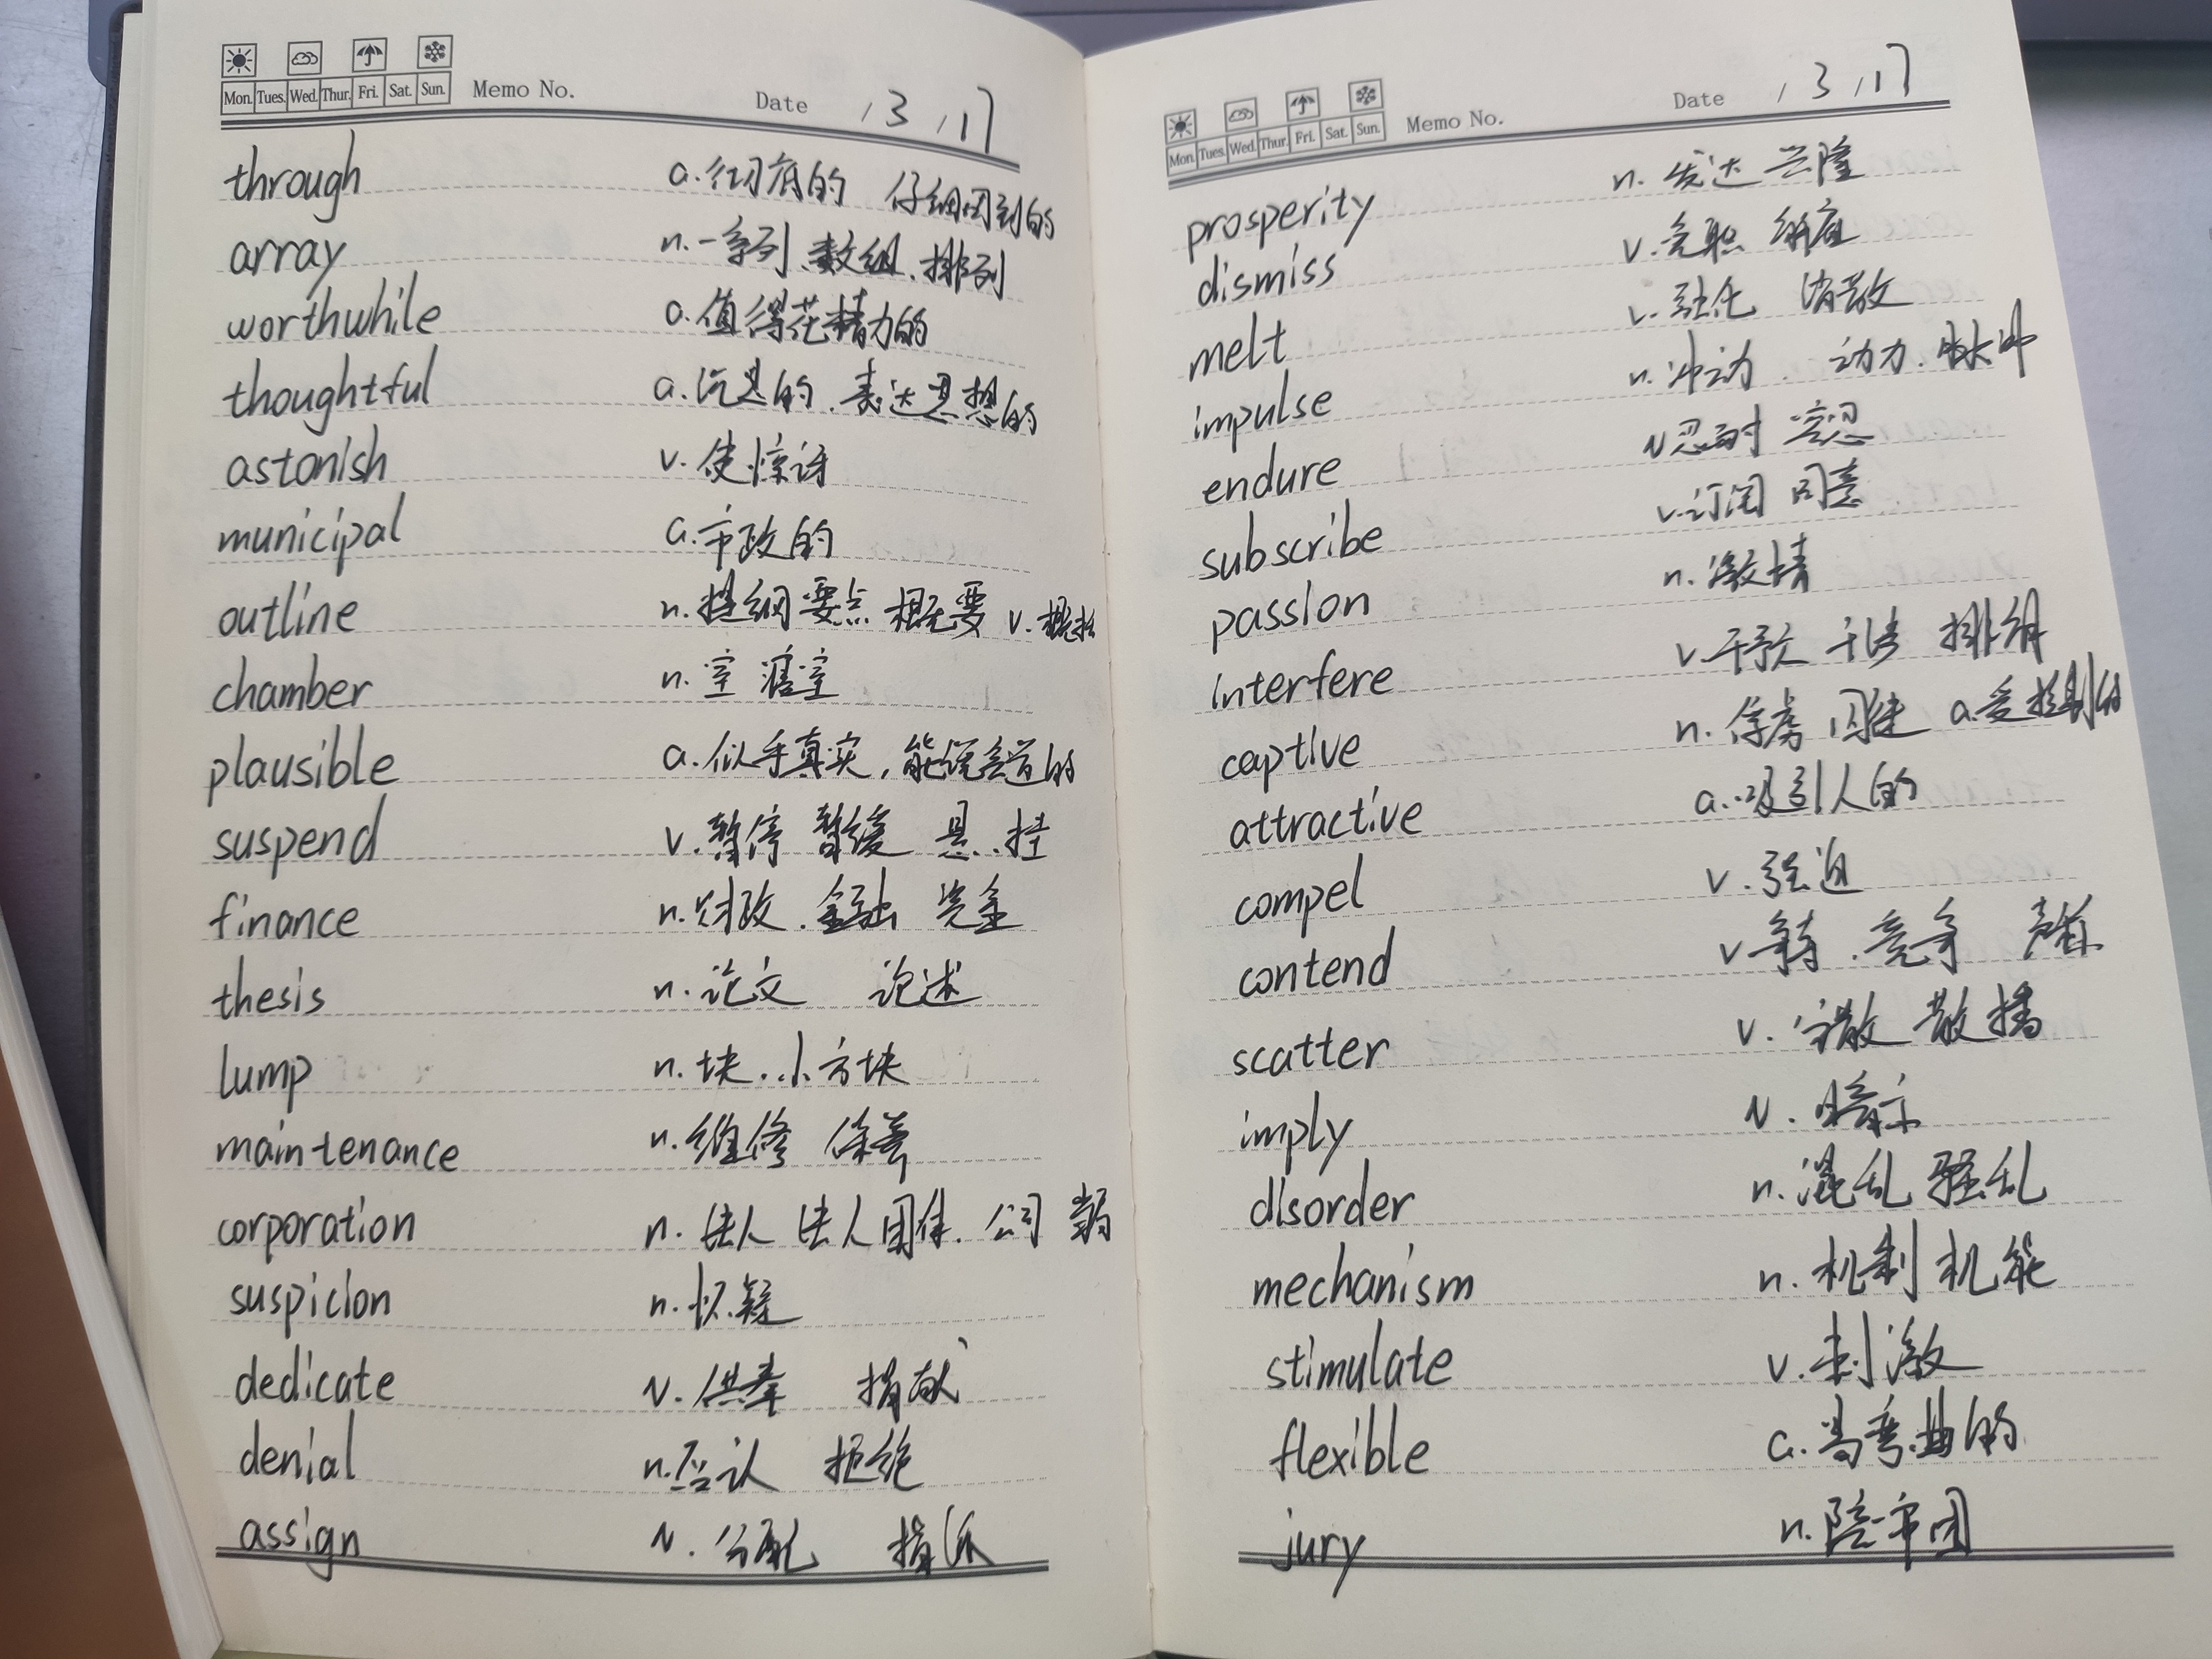 Mon. Tues. Wed. Thur. Fri. Sat. Sun. Memo No. Date / 3 / 17
through a.彻底的 仔细周到的
array n.一系列、数组、排列
worthwhile a.值得花精力的
thoughtful a.沉思的、表达思想的
astonish v.使惊讶
municipal a.市政的
outline n.提纲 要点 概要 v.概括
chamber n.室 寝室
plausible a.似乎真实,能说会道的
suspend v.暂停 暂缓 悬.挂
finance n.财政.金融 资金
thesis n.论文 论述
lump n.块.小方块
maintenance n.维修 保养
corporation n.法人 法人团体.公司
suspicion n.怀疑
dedicate v.供奉 捐献
denial n.否认 拒绝
assign v.分配 指派
Mon. Tues. Wed. Thur. Fri. Sat. Sun. Memo No. Date / 3 / 17
prosperity n.发达 兴隆
dismiss v.免职 解雇
melt v.融化 消散
impulse n.冲动.动力.脉冲
endure v忍耐 容忍
subscribe v.订阅 同意
passion n.激情
interfere v.干预 干涉
captive n.俘虏 囚徒 a.受控制的
attractive a.吸引人的
compel v.强迫
contend v竞争
scatter v.散播
imply v.暗示
disorder n.混乱 骚乱
mechanism n.机制 机能
stimulate v.刺激
flexible a.易弯曲的
jury n.陪审团